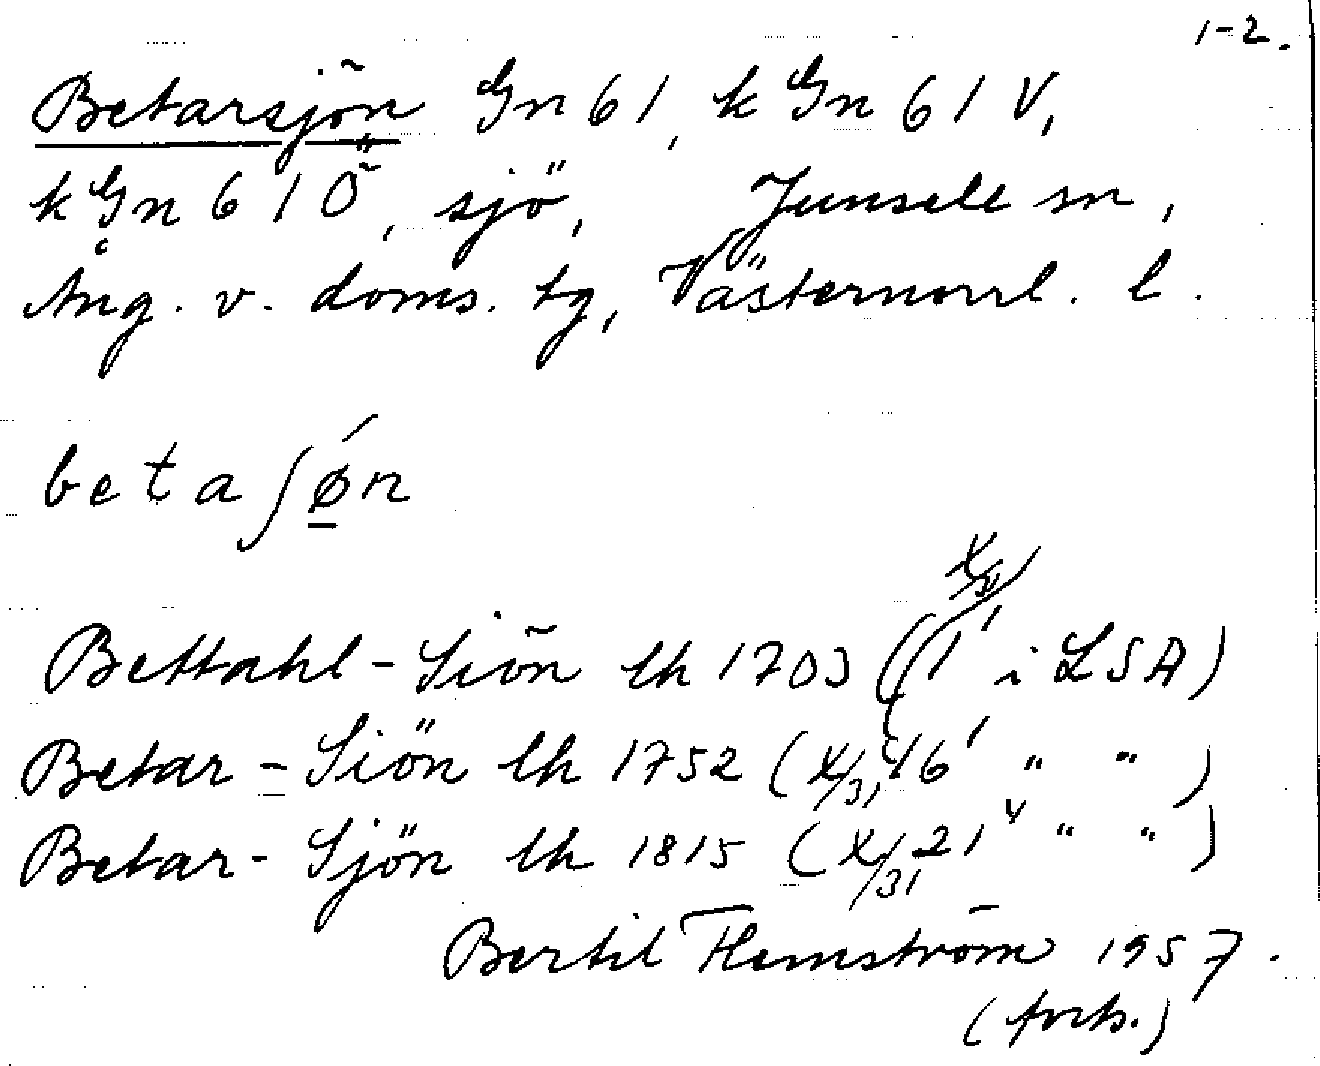 1-2.
Betarsjön Gn 61, k Gn 61 V,
k Gn 61 Ö, sjö, Junsele sn,
Ång. v. doms. tg, Västernorrl. l.
betaʃǿ̱n
Bettahl-Siön lk 1703 (X/31 1' i LSA)
Betar-Siön lk 1752 (X/31, 16' " ")
Betar-Sjön lk 1815 (X/31, 21⁴ " ")
Bertil Flemström 1957.
(forts.)